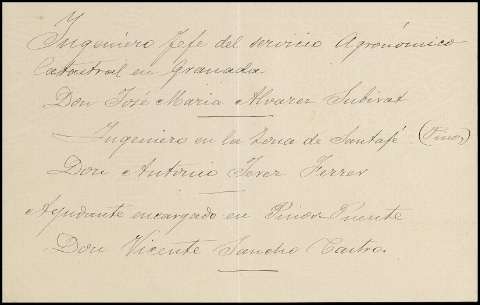 Ingeniero Jefe del servicio Agronómico
Catastral en Granada.
Don José Maria Alvarez Subirat
Ingeniero en la zona de Santafé (Pinos)
Don Antonio Ferrer
Ayudante encargado en Pinos Puente
Don Vicente Sancho Castro.